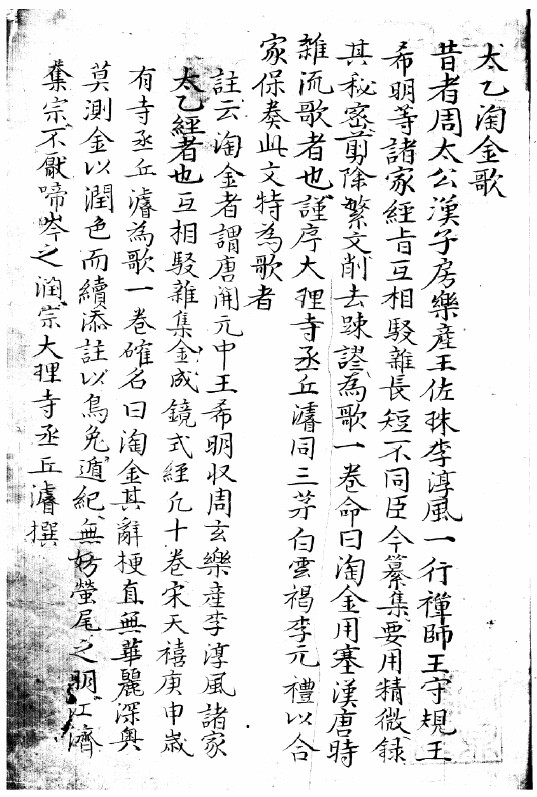 太乙淘金歌
昔者周太公漢子房樂產王佐珠李淳風一行禪師王守規王
希明等諸家經旨互相駁雜長短不同臣今纂集要用精微錄
其秘密剪除繁文削去踈謬為歌一卷命曰淘金用塞漢唐時
雜流歌者也謹序大理寺丞丘濬同三茅白雲褐李元禮以合
家保奏此文特為歌者
註云淘金者謂唐開元中王希明収周玄樂產李淳風諸家
太乙經者也互相駁雜集金成鏡式經凡十卷宋天禧庚申歲
有寺丞丘濬為歌一卷確名曰淘金其辭梗直無華麗深奥
莫測金以潤色而續添註以烏兔遁紀無妨螢尾之明江濟
奪宗不厭啼岑之潤宗大理寺丞丘濬撰